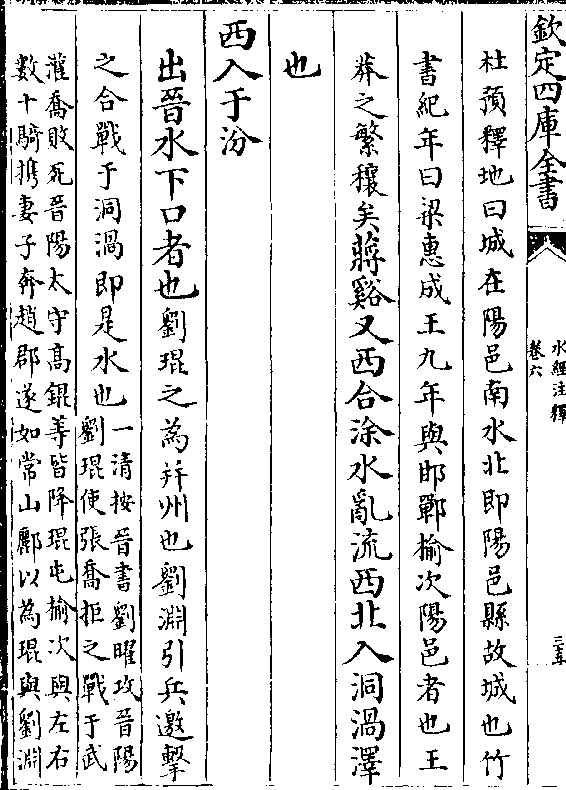 欽定四庫全書
水經注釋
卷六
三五
杜預釋地曰城在陽邑南水北即陽邑縣故城也竹
書紀年曰梁惠成王九年與邯鄲榆次陽邑者也王
莽之繁穰矣蔣谿又西合涂水亂流西北入洞渦澤
也
西入于汾
出晉水下口者也劉琨之為并州也劉淵引兵邀擊
之合戰于洞渦即是水也一清按晉書劉曜攻晉陽
劉琨使張喬拒之戰于武
灌喬敗死晉陽太守高錕等皆降琨屯榆次與左右
數十騎携妻子奔趙郡遂如常山酈以為琨與劉淵